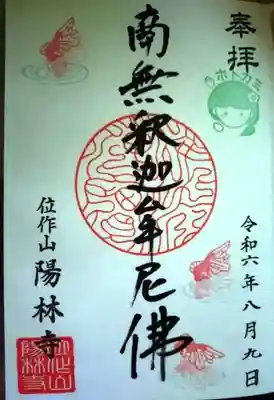 奉拝
令和六年八月九日
南無釈迦牟尼佛
位作山
陽林寺